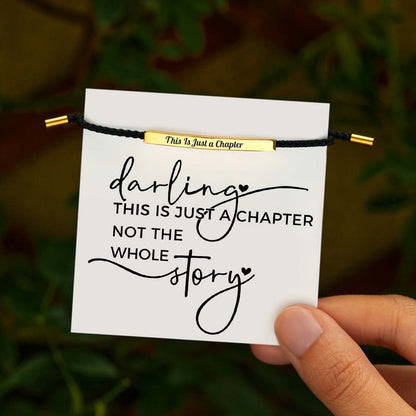 This Is Just a Chapter
darling
THIS IS JUST A CHAPTER
NOT THE
WHOLE story